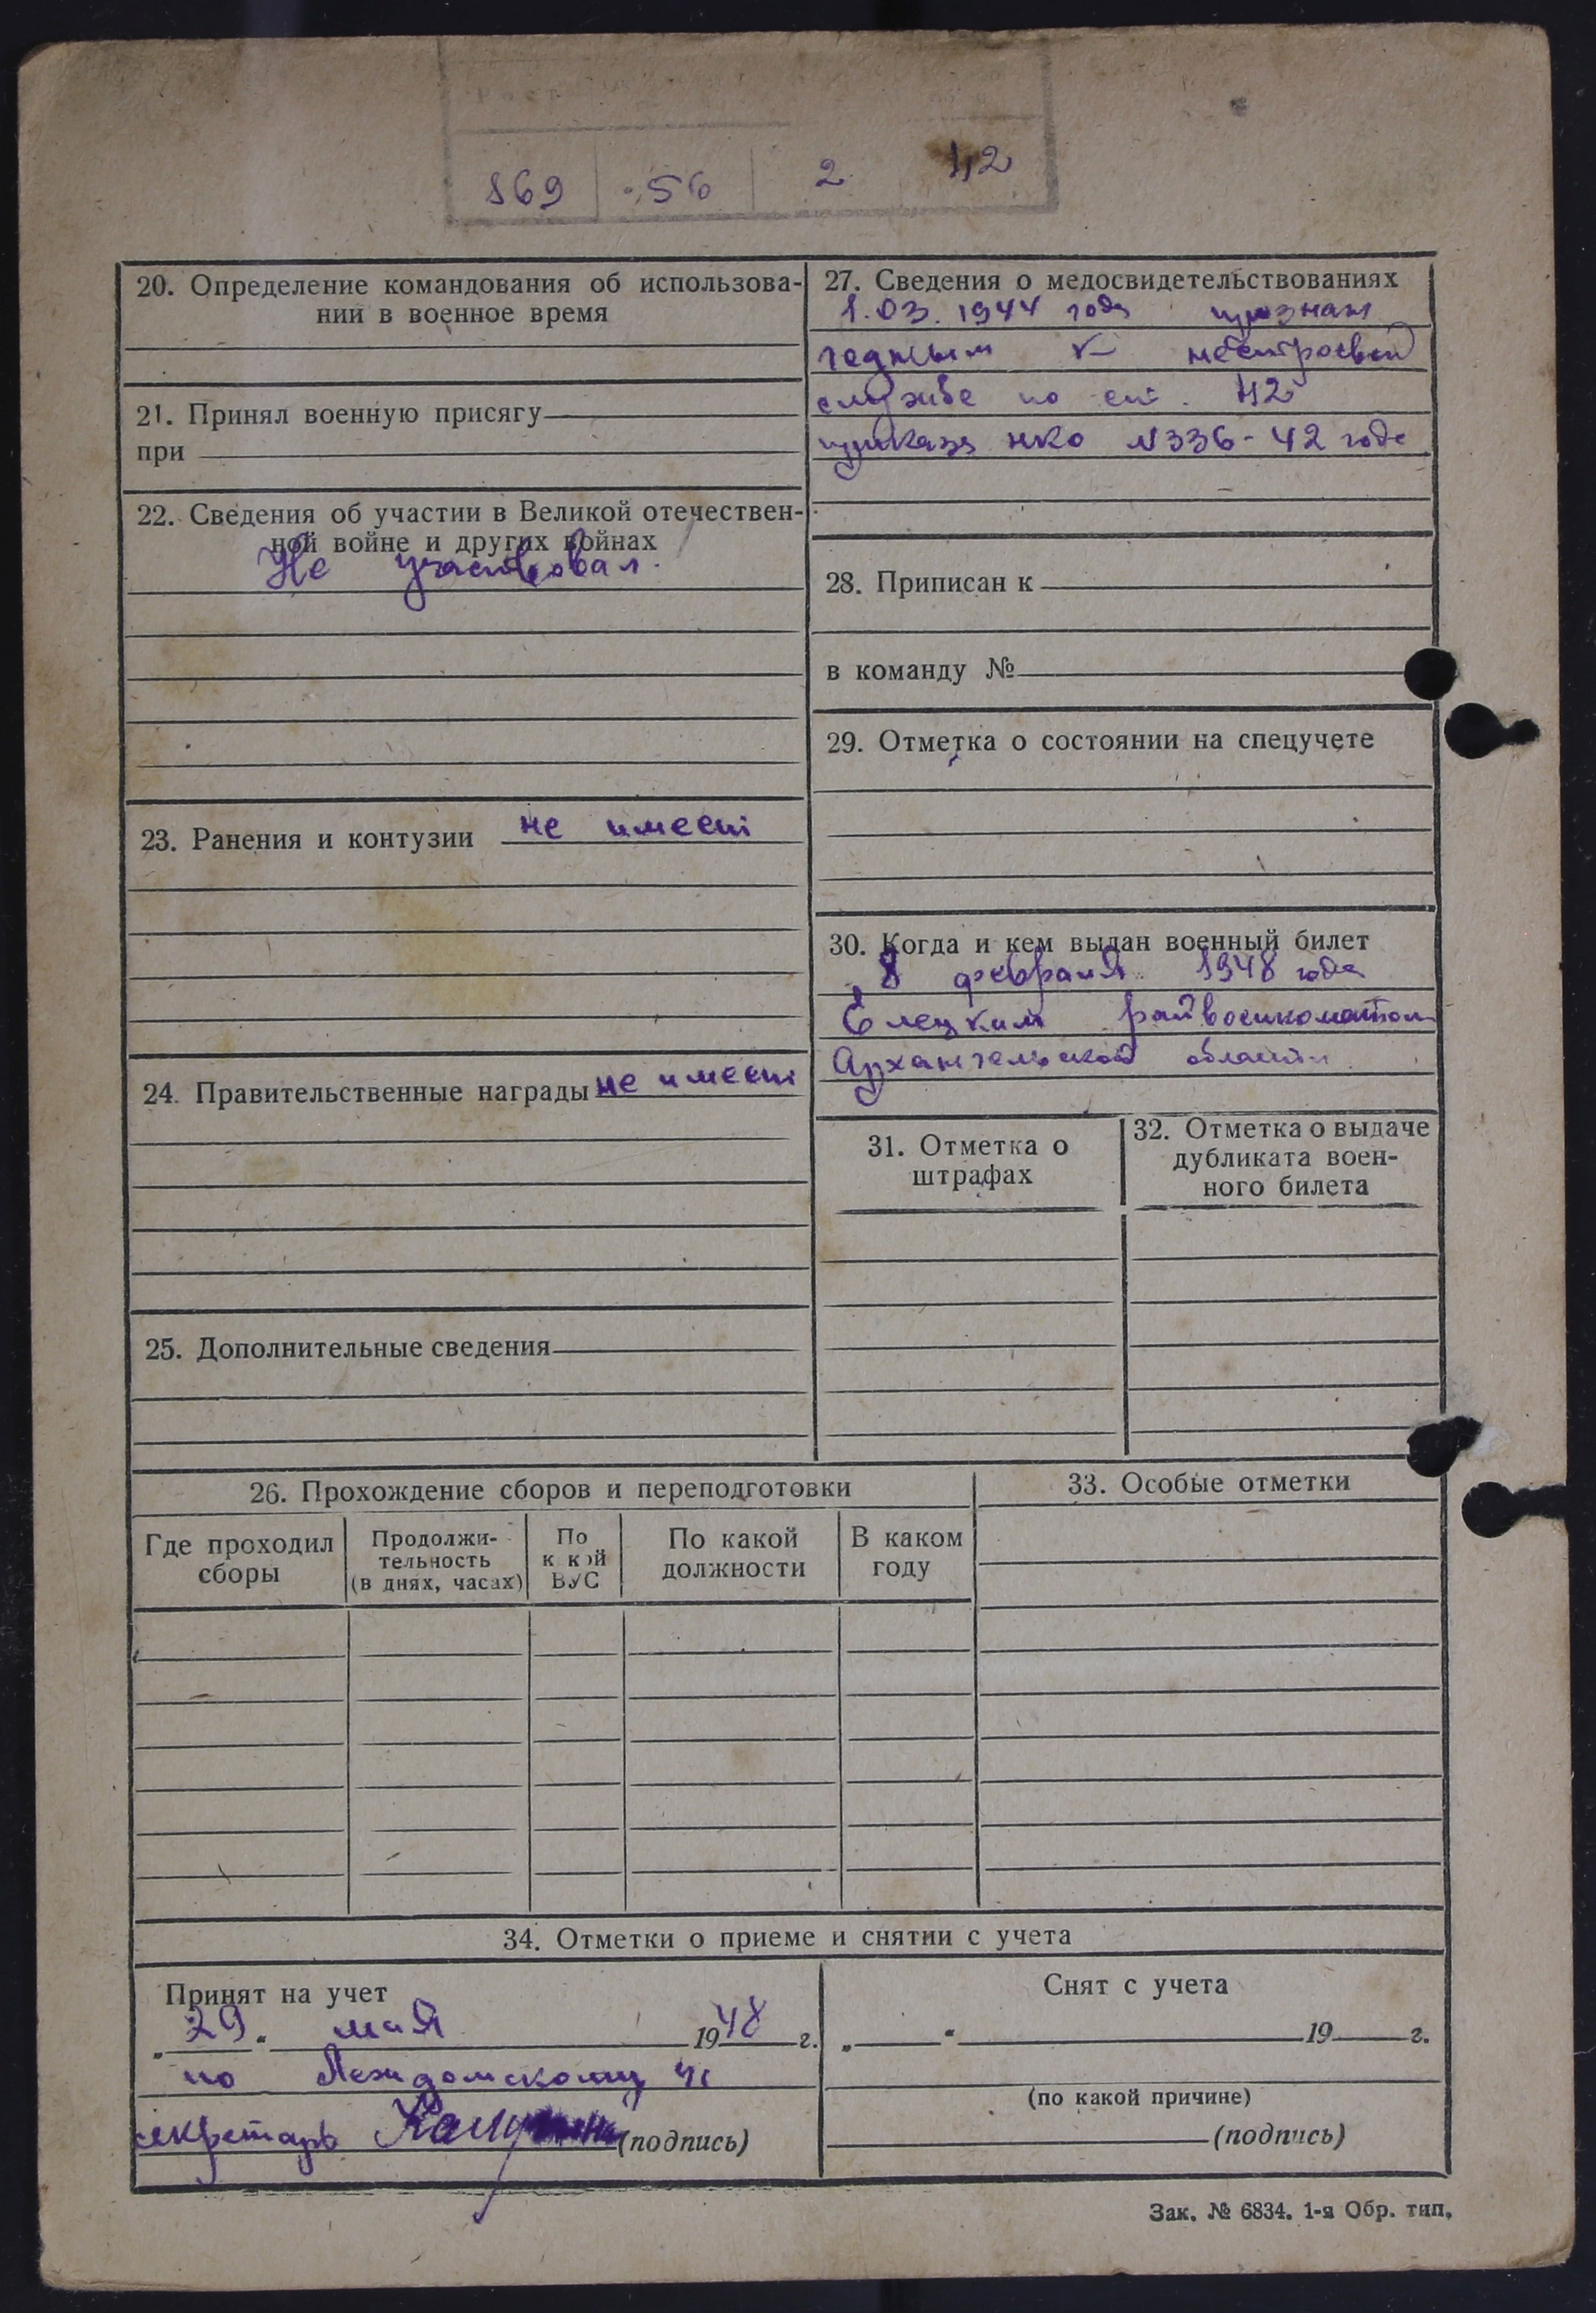 Рост
169 56 2 42
20. Определение командования об использова-
нии в военное время
21. Принял военную присягу
при
22. Сведения об участии в Великой отечествен-
ной войне и других войнах
Не участвовал.
23. Ранения и контузии не имеет
24. Правительственные награды не имеет
25. Дополнительные сведения
27. Сведения о медосвидетельствованиях
1.03.1944 года признан
годным к нестроевой
службе по ст. 42
приказа НКО N336-42 года
28. Приписан к
в команду №
29. Отметка о состоянии на спецучете
30. Когда и кем выдан военный билет
8 февраля 1948 года
райвоенкоматом
Архангельской области
31. Отметка о
штрафах
32. Отметка о выдаче
дубликата воен-
ного билета
26. Прохождение сборов и переподготовки
Где проходил
сборы
Продолжи-
тельность
(в днях, часах)
По
к кой
ВУС
По какой
должности
В каком
году
33. Особые отметки
34. Отметки о приеме и снятии с учета
Принят на учет
„29“ мая 1948 г.
по
секретарь (подпись)
Снят с учета
„ “ 19 г.
(по какой причине)
(подпись)
Зак. № 6834. 1-я Обр. тип.